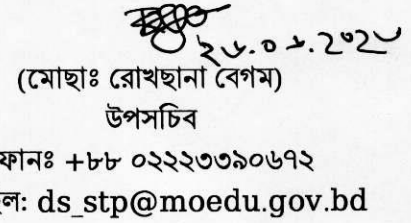 (মোছাঃ রোখছানা বেগম)
উপসচিব
ফোনঃ +৮৮ ০২২২৩৩৯০৬৭২
ds_stp@moedu.gov.bd